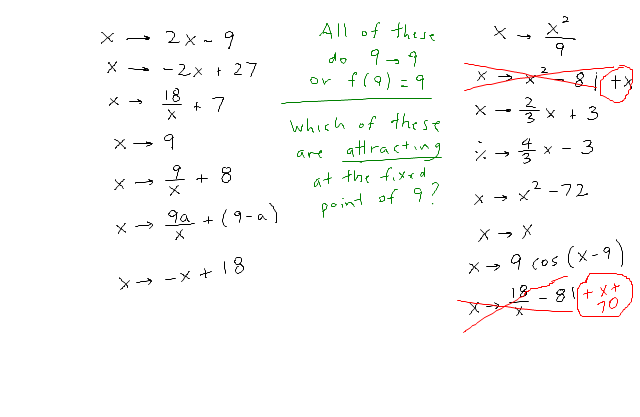 x → 2x - 9
x → -2x + 27
x → 18/x + 7
x → 9
x → 9/x + 8
x → 9a/x + (9-a)
x → -x + 18
All of these
do 9 → 9
or f(9) = 9
Which of these
are attracting
at the fixed
point of 9?
x → x²/9
x → x² - 81 + x
x → 2/3 x + 3
x → 4/3 x - 3
x → x² - 72
x → x
x → 9 cos(x-9)
x → 18/x - 81 + x +
70